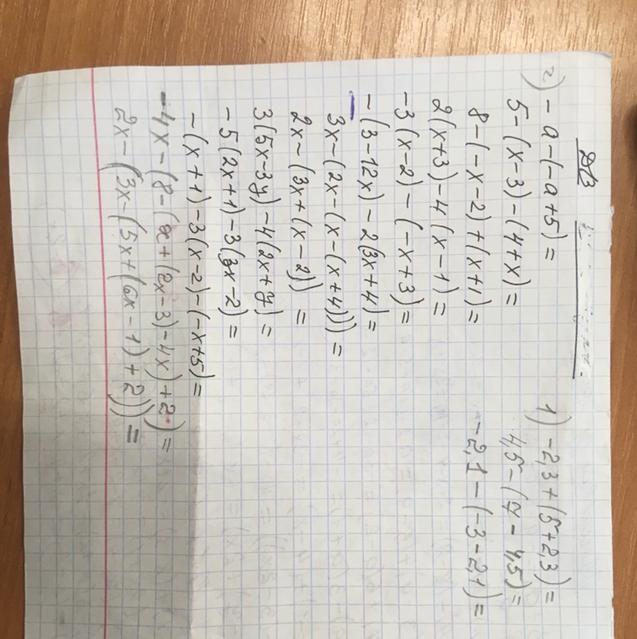 Д/З
2) - a - (-a + 5) =
5 - (x - 3) - (4 + x) =
8 - (-x - 2) + (x + 1) =
2(x + 3) - 4(x - 1) =
-3(x - 2) - (-x + 3) =
-(3 - 12x) - 2(3x + 4) =
3x - (2x - (x - (x + 4))) =
2x - (3x + (x - 2)) =
3(5x - 3y) - 4(2x + y) =
-5(2x + 1) - 3(3x - 2) =
-(x + 1) - 3(x - 2) - (-x + 5) =
-4x - (8 - (x + (2x - 3) - 4x) + 2) =
2x - (3x - (5x + (6x - 1) + 2)) =
1) -2,3 + (5 + 2,3) =
4,5 - (7 - 4,5) =
-2,1 - (-3 - 2,1) =